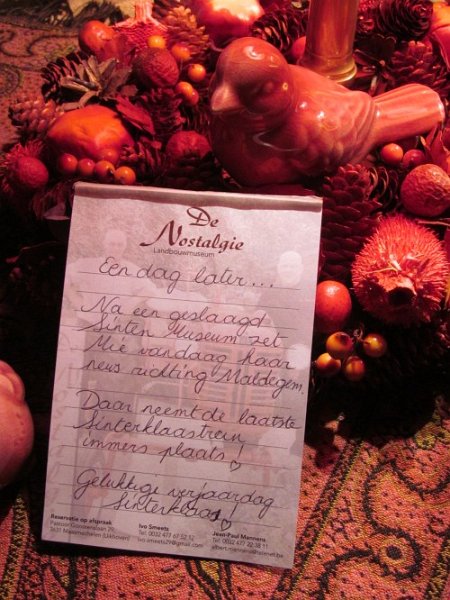 De
Nostalgie
Landbouwmuseum
Een dag later...
Na een geslaagd
Sinten Museum zet
Mie vandaag haar
neus richting Maldegem.
Daar neemt de laatste
Sinterklaastrein
immers plaats!
Gelukkige verjaardag
Sinterklaas!
Reservatie op afspraak
Ivo Smeets
Tel. 0032 477 67 52 12
Jean-Paul Mannens